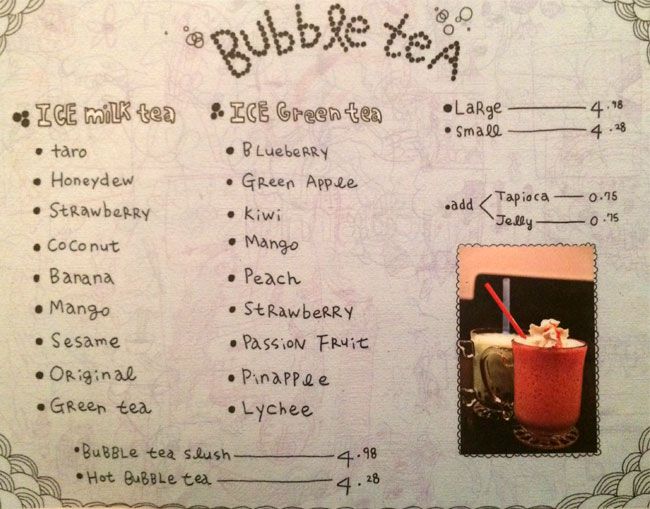 Bubble tea
ICE milk tea
taro
Honeydew
Strawberry
Coconut
Banana
Mango
Sesame
Original
Green tea
ICE Green tea
Blueberry
Green Apple
Kiwi
Mango
Peach
Strawberry
Passion Fruit
Pinapple
Lychee
Large 4.98
Small 4.28
add Tapioca 0.75
Jelly 0.75
Bubble tea slush 4.98
Hot Bubble tea 4.28